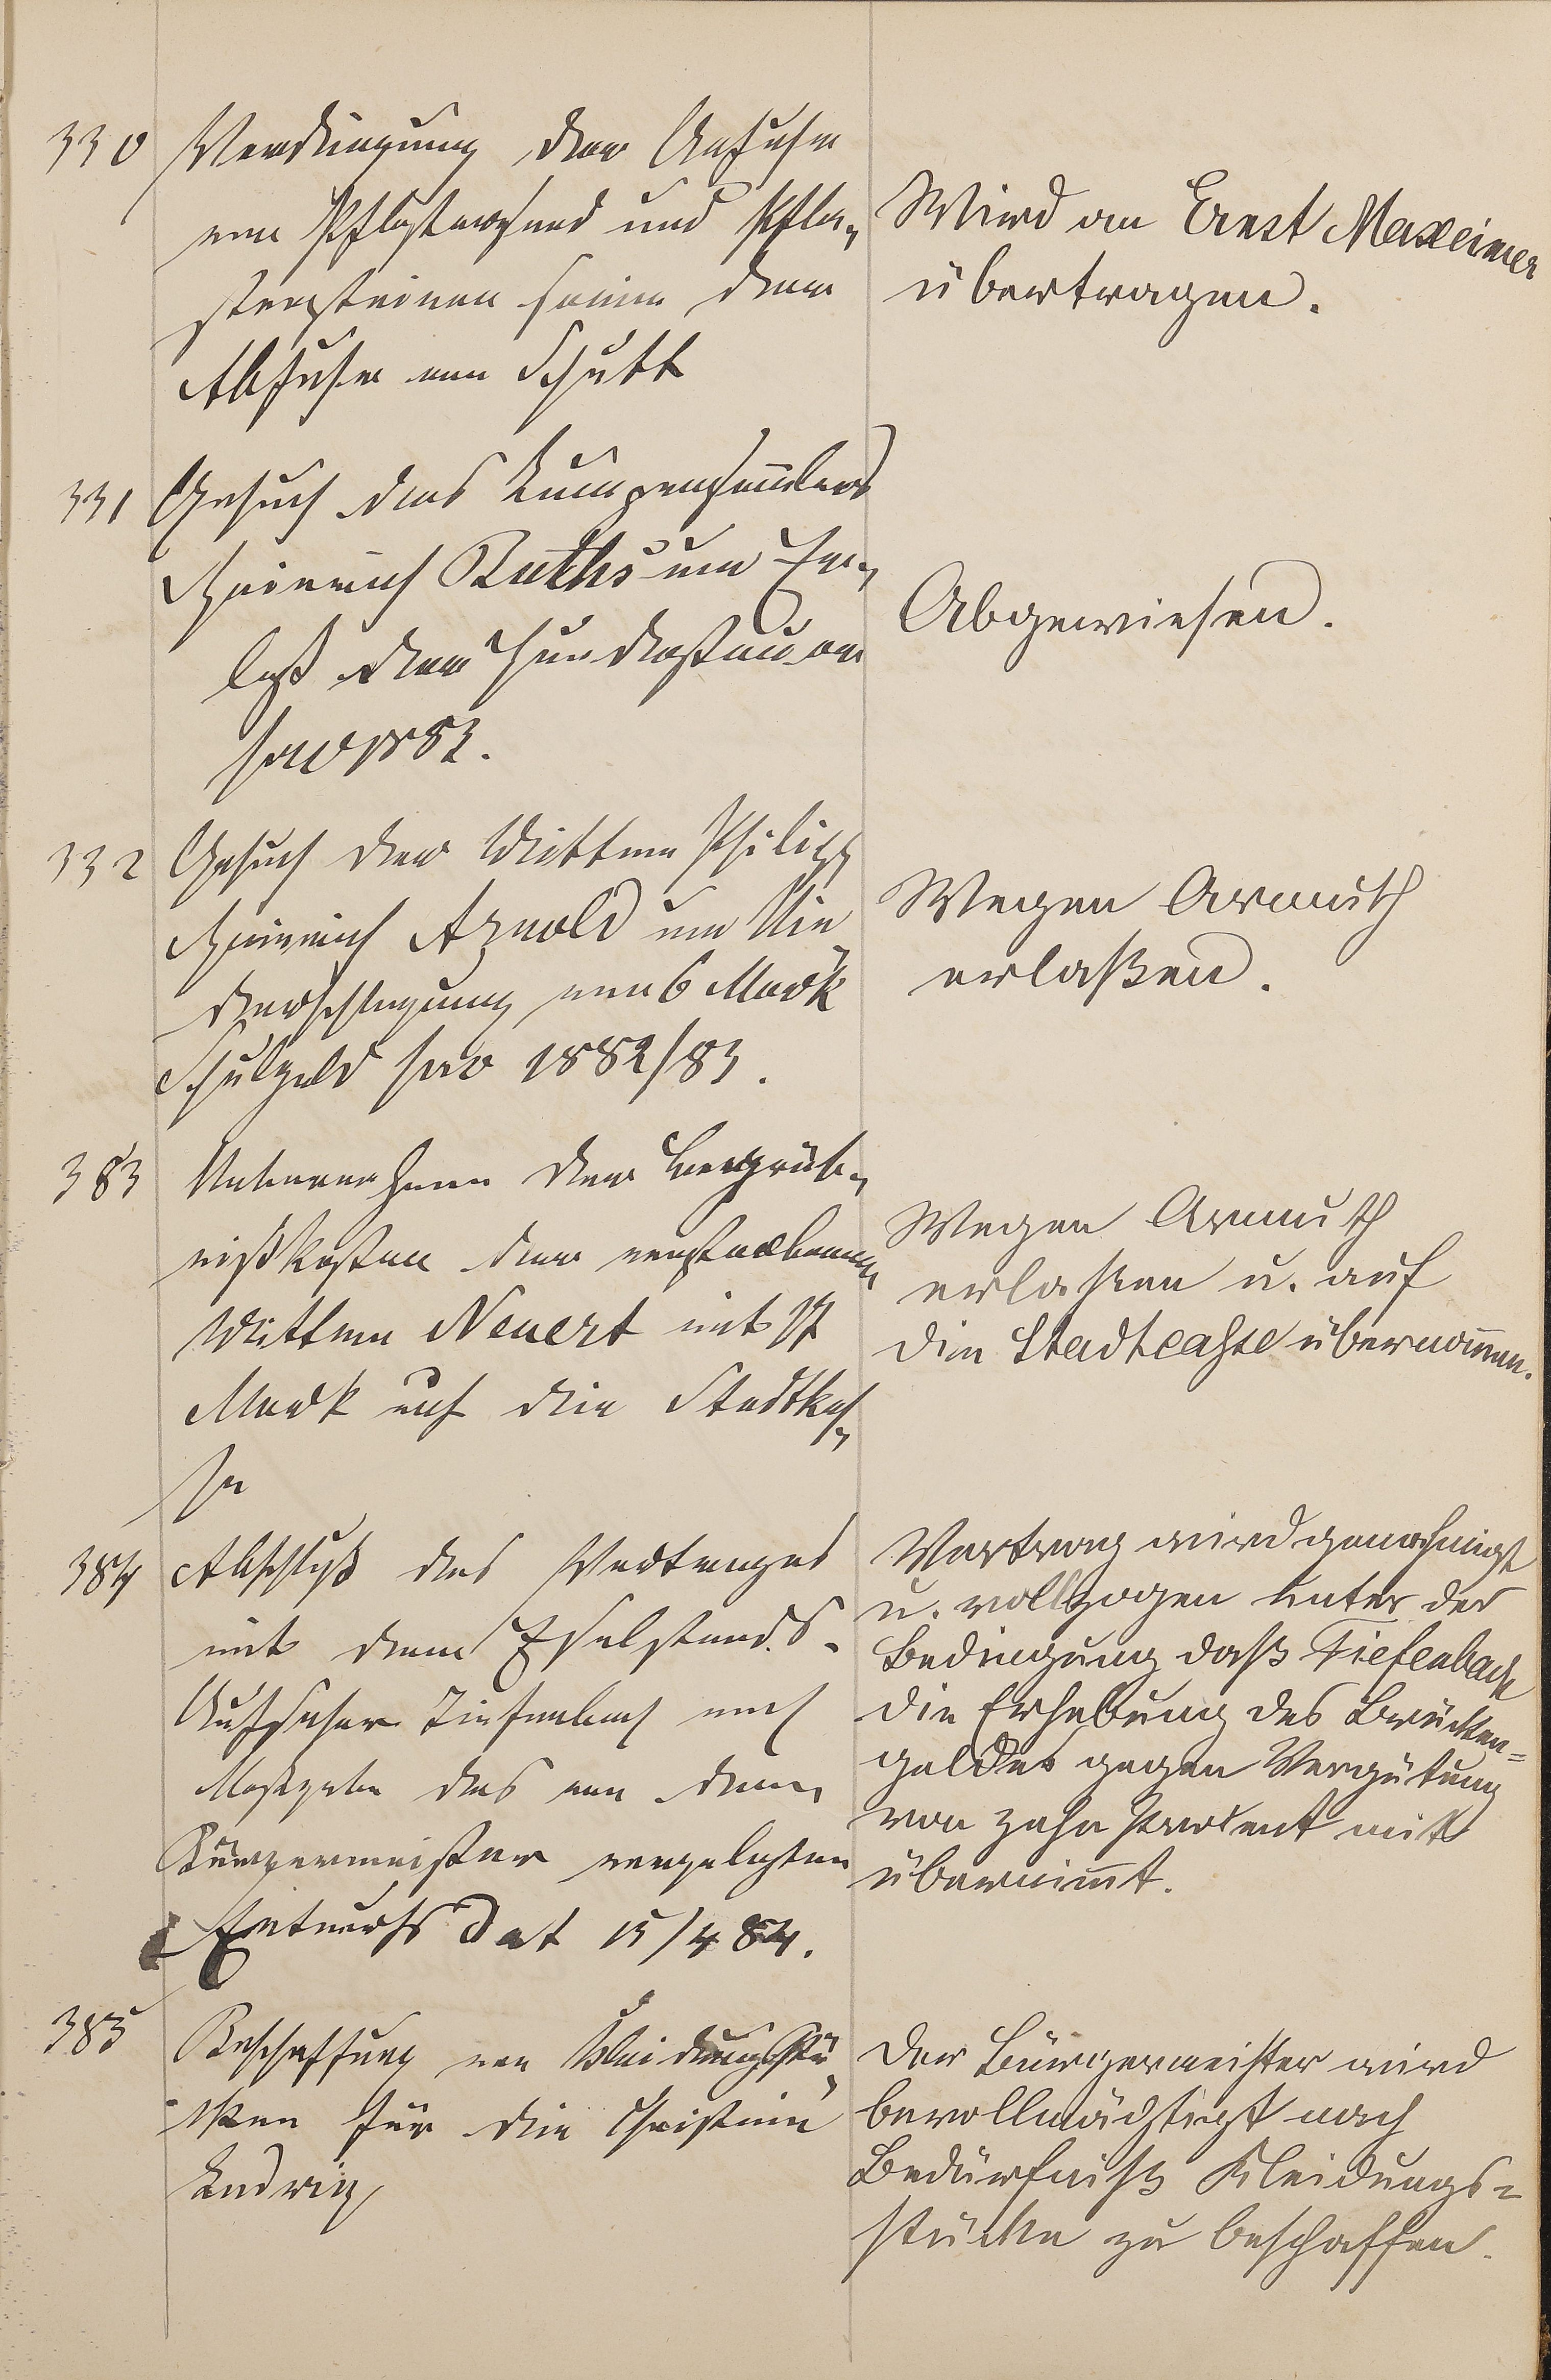 330 Verdingung der Anfuhr
von Pflastersand und Pfla-
stersteinen sowie der
Abfuhr von Schutt
Wird an Ernst Maxeiner
übertragen.
331 Gesuch des Lumpensammlers
Heinrich Raths um Er-
laß der Hundesteuer
pro 1883.
Abgewiesen.
332 Gesuch der Wittwe Philipp
Heinrich Arnold um Nie-
derschlagung von 6 Mark
Schulgeld pro 1882/83.
Wegen Armuth
erlaßen.
383 Uebernahme der Begräb-
nißkosten der verstorbenen
Wittwe Neuert mit 17
Mark auf die Stadtkas-
se
Wegen Armuth
erlaßen u. auf
die Stadtcasse übernom̄en.
384 Abschluß des Vertrages
mit dem Eselstands-
Aufseher Tiefenbach nach
Maßgabe des von dem
Bürgermeister vorgelegten
Entwurfs dat 15/4 84.
Vertrag wird genehmigt
u. vollzogen unter der
Bedingung daß Tiefenbach
die Erhebung des Brücken=
geldes gegen Vergütung
von zehn Procent mit
übernim̄t.
385 Beschaffung von Kleidungsstü-
cken für die Christine
Ludwig
Der Bürgermeister wird
bevollmächtigt nach
Bedürfniß Kleidungs=
stücke zu beschaffen.